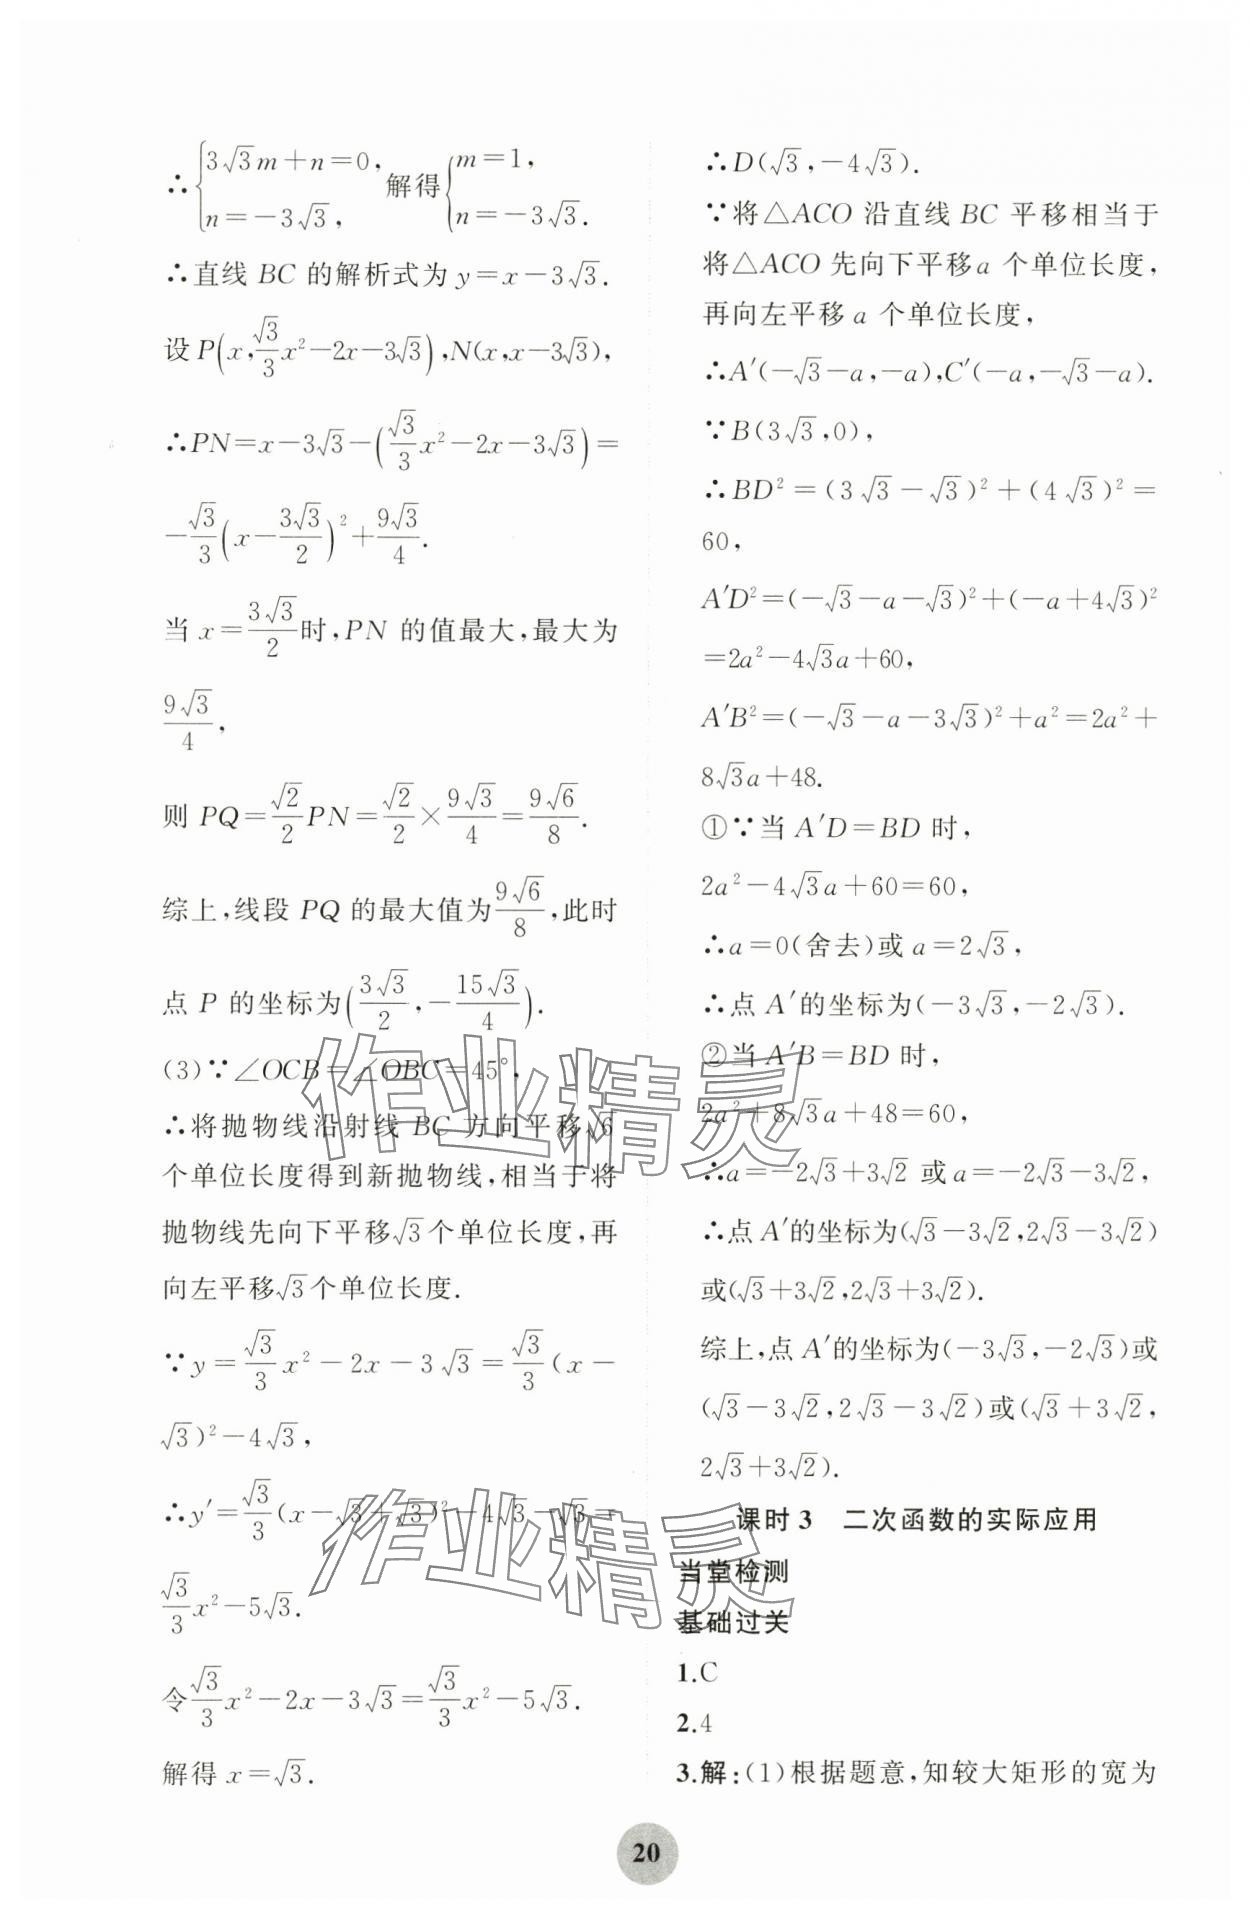 ∴{3√3m+n=0, n=-3√3, 解得{m=1, n=-3√3.
∴直线 BC 的解析式为 y=x-3√3.
设P(x,√3/3x²-2x-3√3),N(x,x-3√3),
∴PN=x-3√3-(√3/3x²-2x-3√3)=
-√3/3(x-3√3/2)²+9√3/4.
当 x=3√3/2时,PN 的值最大,最大为
9√3/4,
则 PQ=√2/2PN=√2/2×9√3/4=9√6/8.
综上,线段 PQ 的最大值为9√6/8,此时
点 P 的坐标为(3√3/2,-15√3/4).
(3)∵∠OCB=∠OBC=45°,
∴将抛物线沿射线 BC 方向平移√6
个单位长度得到新抛物线,相当于将
抛物线先向下平移√3个单位长度,再
向左平移√3个单位长度.
∵y=√3/3x²-2x-3√3=√3/3(x-
√3)²-4√3,
∴y′=√3/3(x-√3+√3)²-4√3-√3=
√3/3x²-5√3.
令√3/3x²-2x-3√3=√3/3x²-5√3.
解得 x=√3.
∴D(√3,-4√3).
∵将△ACO 沿直线 BC 平移相当于
将△ACO 先向下平移a 个单位长度,
再向左平移 a 个单位长度,
∴A′(-√3-a,-a),C′(-a,-√3-a).
∵B(3√3,0),
∴BD²=(3√3-√3)²+(4√3)²=
60,
A′D²=(-√3-a-√3)²+(-a+4√3)²
=2a²-4√3a+60,
A′B²=(-√3-a-3√3)²+a²=2a²+
8√3a+48.
①∵当 A′D=BD 时,
2a²-4√3a+60=60,
∴a=0(舍去)或 a=2√3,
∴点 A′的坐标为(-3√3,-2√3).
②当 A′B=BD 时,
2a²+8√3a+48=60,
∴a=-2√3+3√2 或 a=-2√3-3√2,
∴点 A′的坐标为(√3-3√2,2√3-3√2)
或(√3+3√2,2√3+3√2).
综上,点 A′的坐标为(-3√3,-2√3)或
(√3-3√2,2√3-3√2)或(√3+3√2,
2√3+3√2).
课时3 二次函数的实际应用
当堂检测
基础过关
1.C
2.4
3.解:(1)根据题意,知较大矩形的宽为
20
作业精灵
作业精灵